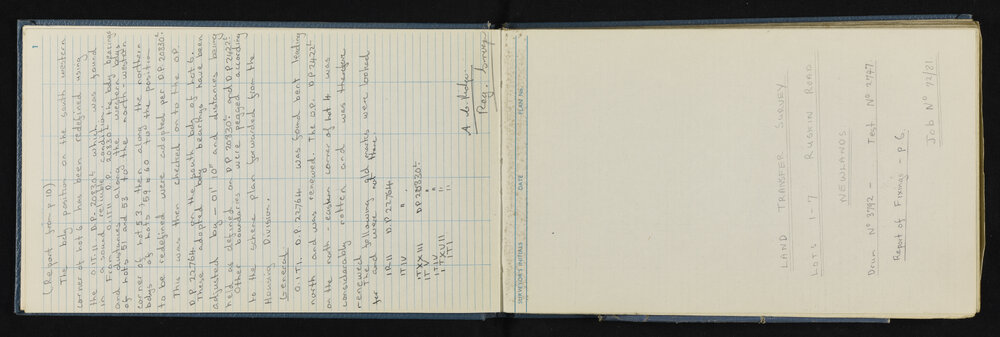 1
(Report from p 10)
The bdy position on the south western
corner of Lot 6 has been redefined using
the O.IT.II D.P. 20830 which was found
in a sound reliable condition.
From O.IT.II D.P. 20830 the bdy bearings
and distances along the western bdys
of Lots 51 and 53 to the north-western
corner of Lot 53 then along the northern
bdys of Lots 59 & 60 two the position
to be redefined were adopted per D.P. 20830.
This was then checked on to the O.P.
D.P. 22764 on the south bdy of Lot 6.
These adopted bdy bearings have been
adjusted by - 01' 10" and distances being
held as defined on D.P 20830 and D.P 2422
Other boundaries were pegged according
to the scheme plan forwarded from the
Housing Division.
General
O.ITI. D.P. 22764 was found bent leading
north and was renewed. The O.P. D.P. 2422
on the north-eastern corner of Lot 4 was
considerably rotten and was therefore
renewed
The following old marks were looked
for and were not there.
IR II D.P 22764
IT IV "
ITXXIII D.P 20830
IT V "
IT IV "
ITXVII "
IT I "
Reg. Surveyor
SURVEYOR'S INITIALS DATE PLAN NO.
LAND TRANSFER SURVEY
LOTS 1-7 RUSKIN ROAD
NEWLANDS
Drum No 3792 - Test No 2747
Report of Fixings - p 6.
Job No 72/81